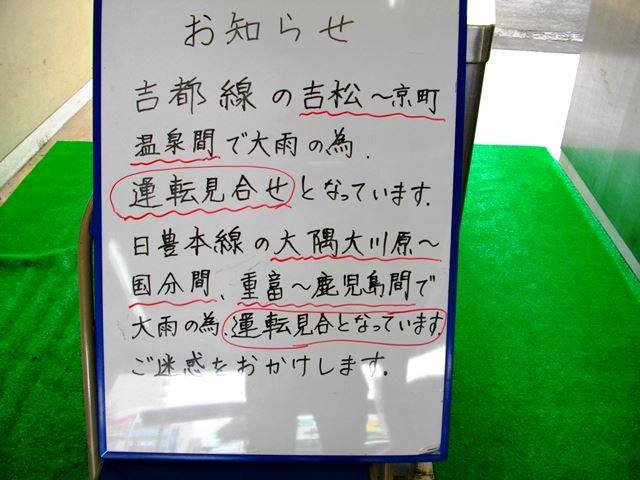 お知らせ
吉都線の吉松～京町
温泉間で大雨の為.
運転見合せとなっています.
日豊本線の大隅大川原～
国分間、重富～鹿児島間で
大雨の為.運転見合となっています.
ご迷惑をおかけします.